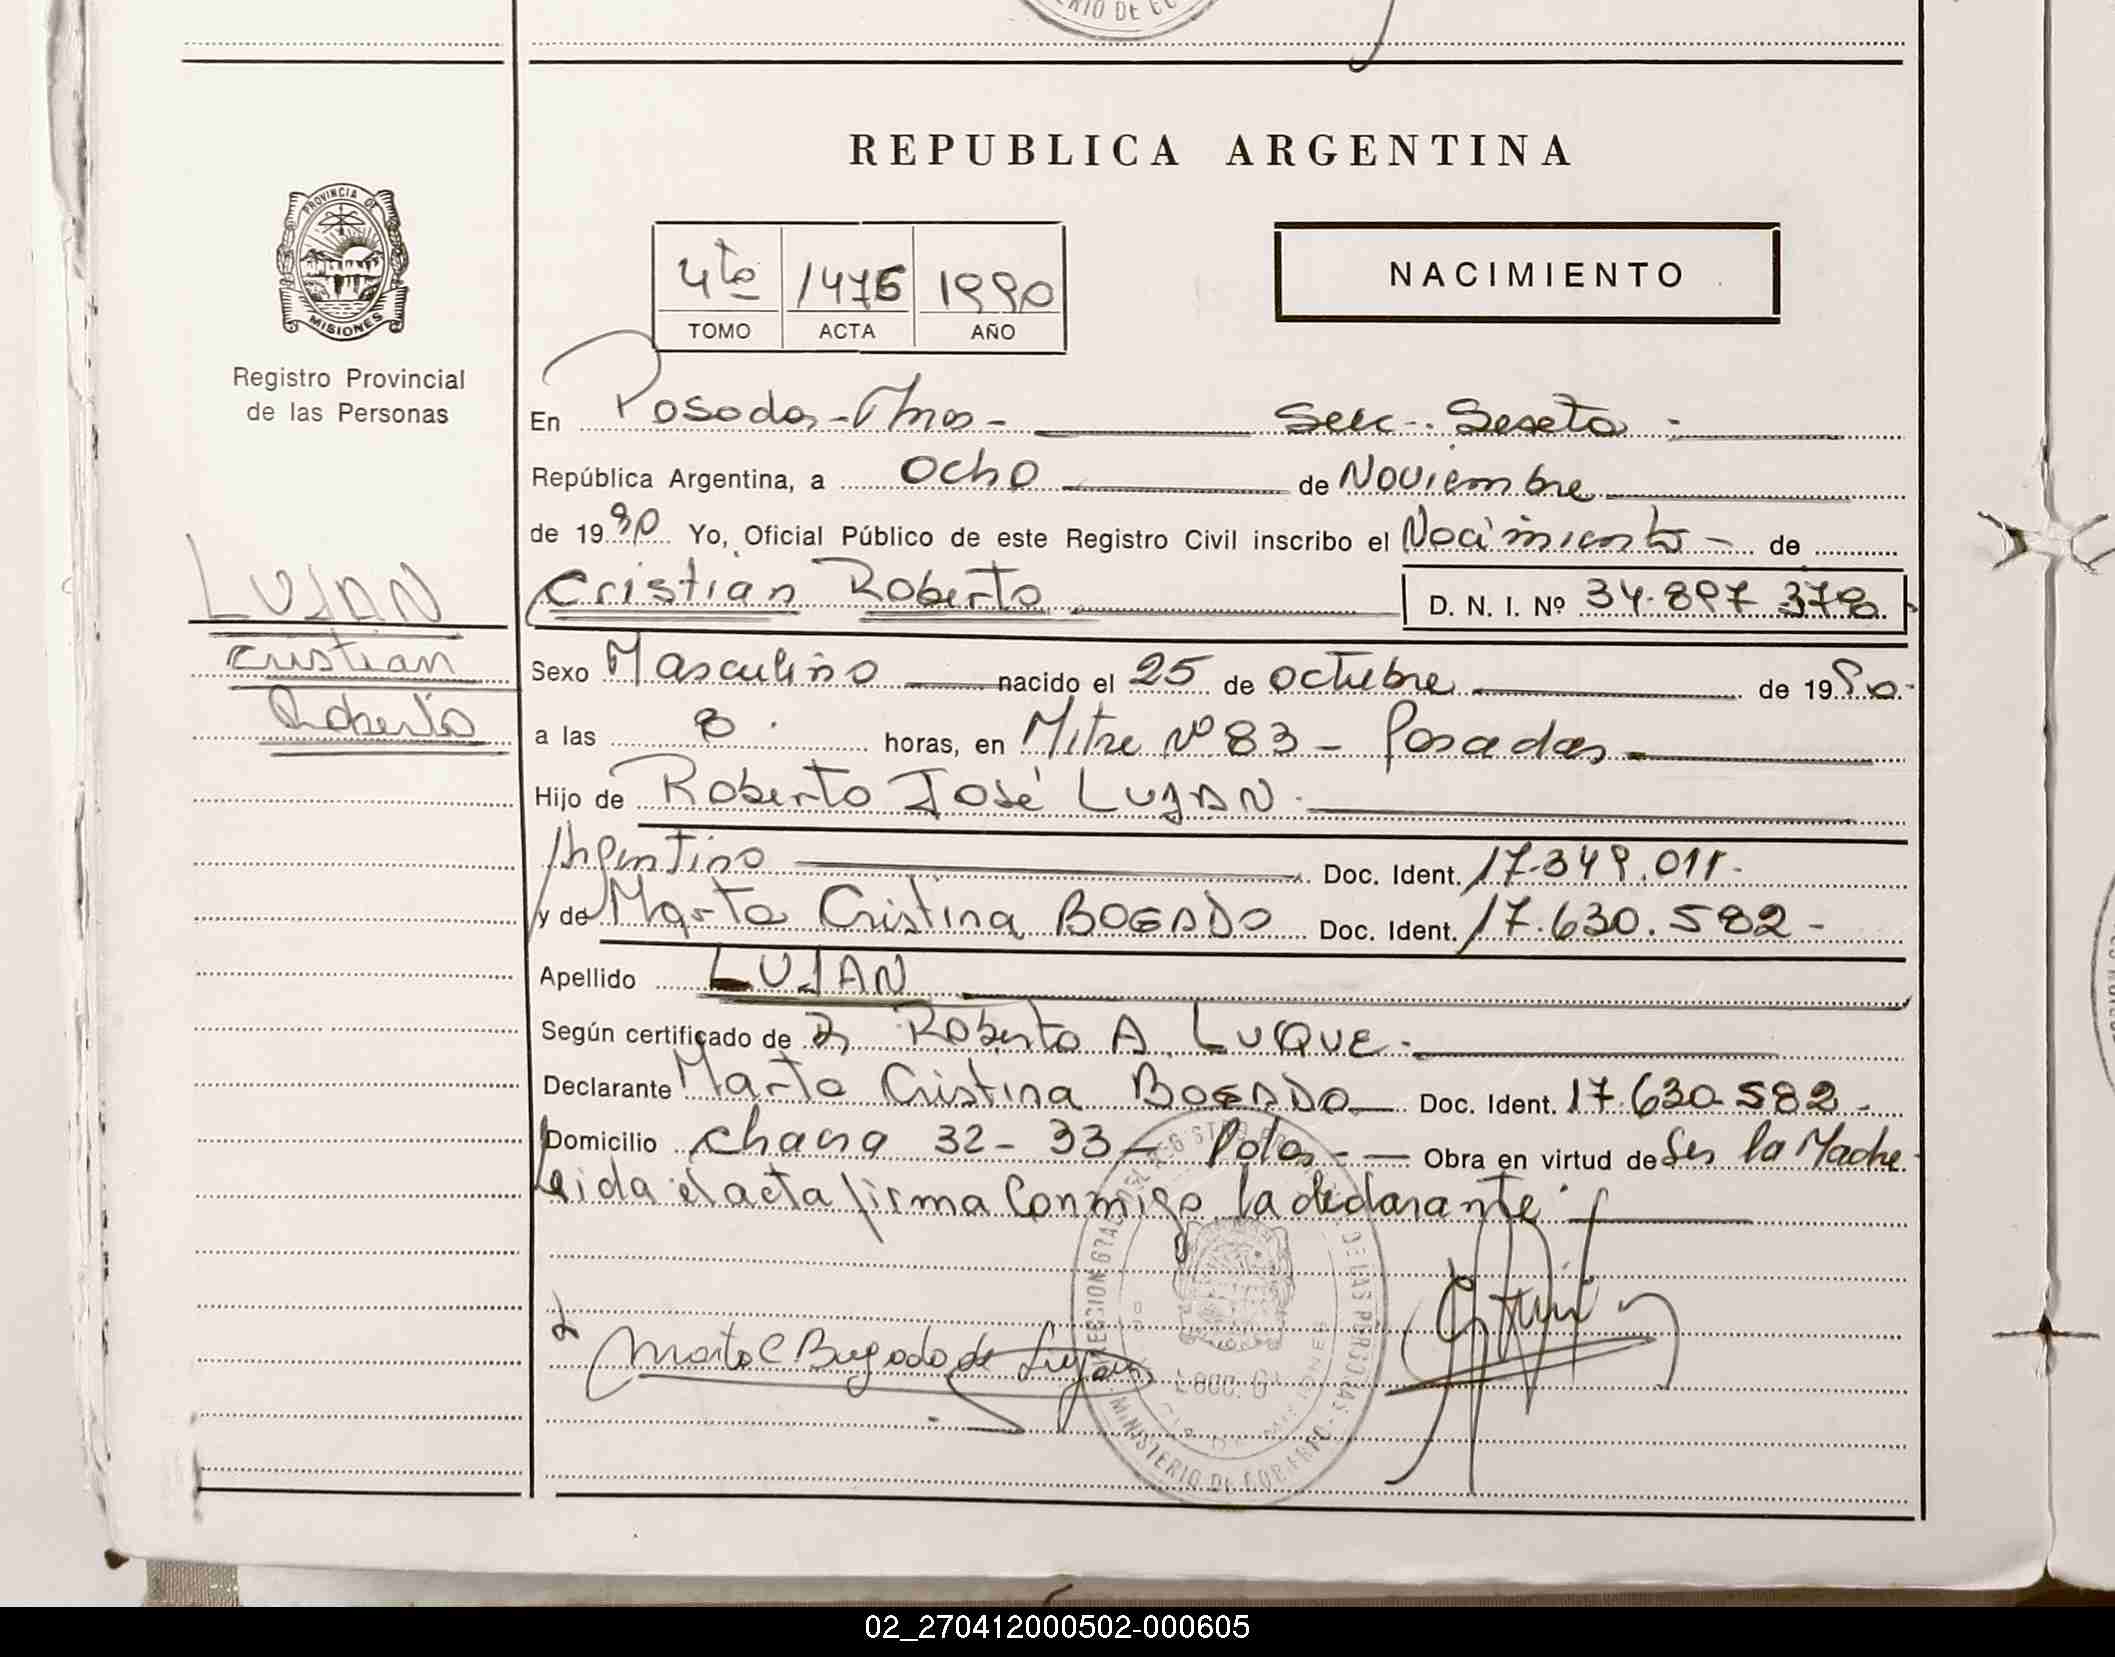 MINISTERIO DE GO
REPUBLICA ARGENTINA
PROVINCIA DE
MISIONES
Registro Provincial
de las Personas
4to 1476 1990
TOMO ACTA AÑO
NACIMIENTO
En Posadas - Mnes - Secc. Sexta -
República Argentina, a ocho de Noviembre
de 1990 Yo, Oficial Público de este Registro Civil inscribo el Nacimiento - de
Cristian Roberto D. N. I. Nº 34.897.378
LUJAN
Cristian
Roberto
Sexo Masculino nacido el 25 de octubre de 1990.
a las 8. horas, en Mitre Nº 83 - Posadas
Hijo de Roberto José LUJAN.
Argentino Doc. Ident. 17.349.011.-
y de Marta Cristina BOGADO Doc. Ident. 17.630.582 -
Apellido LUJAN
Según certificado de Dr Roberto A. LUQUE.
Declarante Marta Cristina BOGADO Doc. Ident. 17.630.582 -
Domicilio chacra 32-33 - Pdas - Obra en virtud de ser la Madre.
Leida el acta firma conmigo la declarante.
Marta C Bogado de Luján
MINISTERIO DE GOBIERNO
02_270412000502-000605